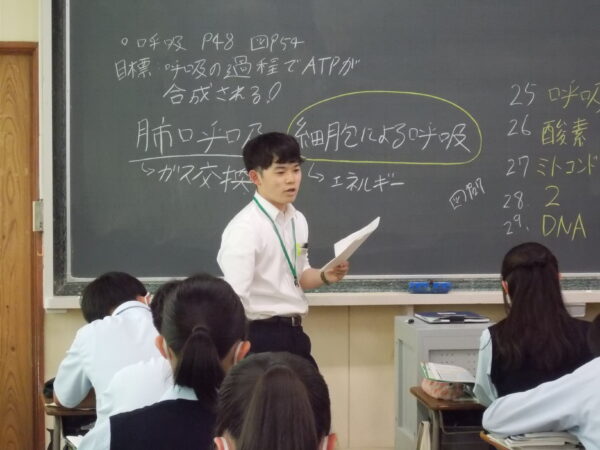 ○呼吸 P48 図P54
目標:呼吸の過程でATPが
合成される!
肺呼吸 細胞による呼吸
↳ガス交換 ↳エネルギー
25 呼吸
26 酸素
27 ミトコンド
28. 2
29. DNA